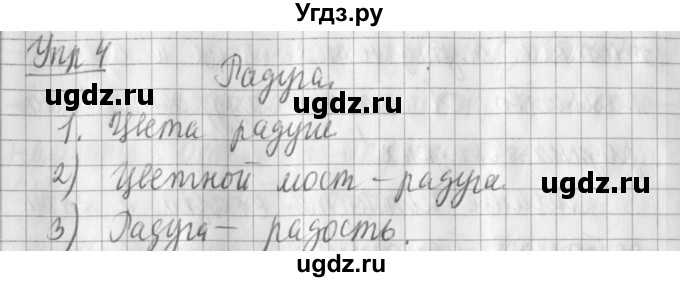 Угдз.ру
Упр 4
Радуга.
ugdz.ru ugdz.ru ugdz.ru
1. Цвета радуги
2) Цветной мост – радуга.
ugdz.ru ugdz.ru
3) Радуга – радость.
ugdz.ru